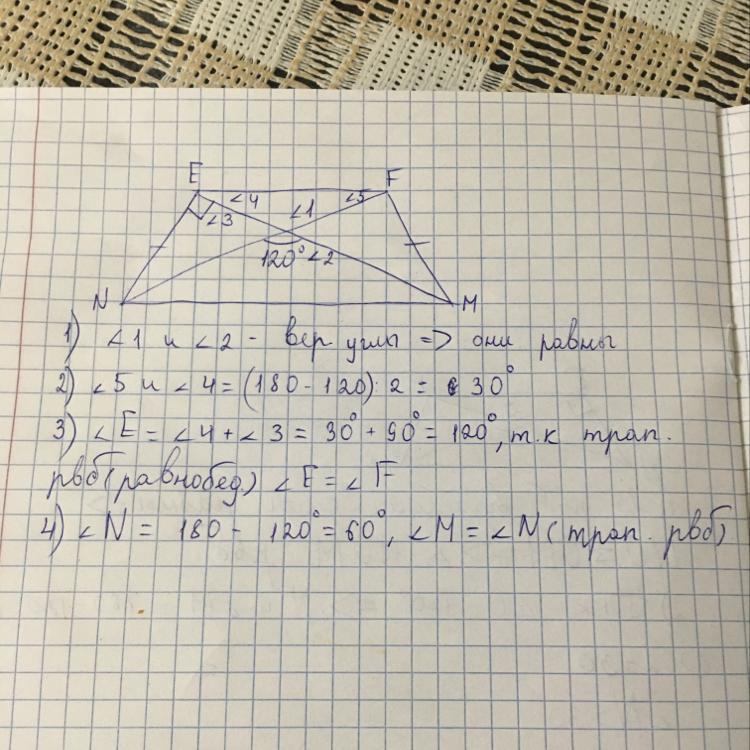 E F
∠4 ∠1 ∠5
∠3
120° ∠2
N M
1) ∠1 и ∠2 - вер углы => они равны
2) ∠5 и ∠4 = (180 - 120) : 2 = 30°
3) ∠E = ∠4 + ∠3 = 30° + 90° = 120°, т.к трап.
рвб (равнобед.) ∠E = ∠F
4) ∠N = 180 - 120° = 60°, ∠M = ∠N (трап. рвб)